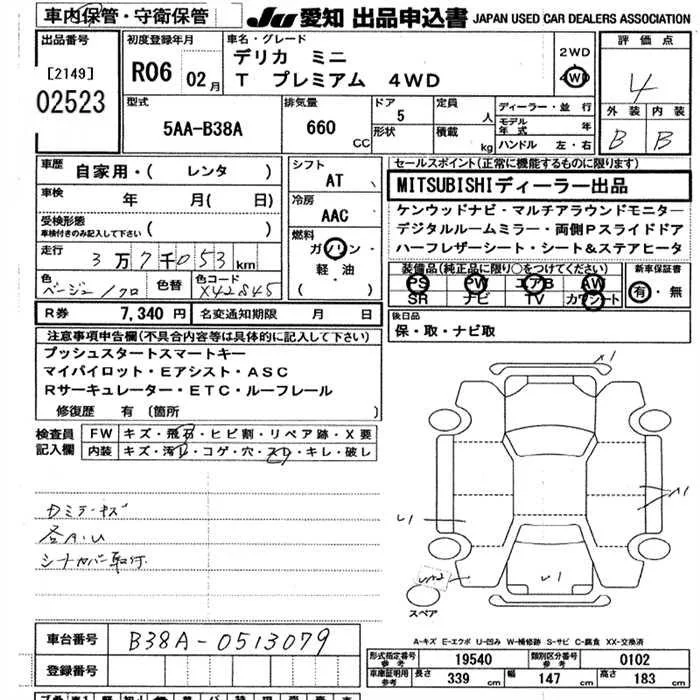 車内保管・守衛保管
JU 愛知 出品申込書 JAPAN USED CAR DEALERS ASSOCIATION
出品番号
[2149]
02523
初度登録年月
R06 02月
車名・グレード
デリカ ミニ
T プレミアム 4WD
2WD
4WD
評価点
4
外装 内装
B B
型式
5AA-B38A
排気量
660 CC
ドア
5
形状
定員
人
積載
kg
ディーラー・並行
モデル年式 年
ハンドル 左・右
車歴
自家用・( レンタ )
車検
年 月( 日)
受検形態
車検付きのみ記入して下さい ( )
走行
3万7千053km
色
ベージュ/クロ
色替
色コード
X42845
シフト
AT
冷房
AAC
燃料
ガソリン・
軽・油
( )
セールスポイント(正常に機能するものに限ります)
MITSUBISHIディーラー出品
ケンウッドナビ・マルチアラウンドモニター
デジタルルームミラー・両側Pスライドドア
ハーフレザーシート・シート&ステアヒータ
装備品(純正品に限り○をつけてください)
PS PW エアB AW
SR ナビ TV カワシート
新車保証書
有・無
R券 7,340円
名変通知期限 月 日
後日品
保・取・ナビ取
注意事項申告欄(不具合内容等は具体的に記入して下さい)
プッシュスタートスマートキー
マイパイロット・Eアシスト・ASC
Rサーキュレーター・ETC・ルーフレール
修復歴 有 〔箇所 〕
検査員
記入欄
FW キズ・飛石・ヒビ割・リペア跡・X要
内装 キズ・汚レ・コゲ・穴・スレ・キレ・破レ
各A.U
X1
X1
U1
U1
スペア
A-キズ E-エクボ U-凹み W-補修跡 S-サビ C-腐食 XX-交換済
車台番号
B38A-0513079
登録番号
形式指定番号
参考
19540
類別区分番号
参考
0102
車庫証明
参考
長さ 339 cm
幅 147 cm
高さ 183 cm